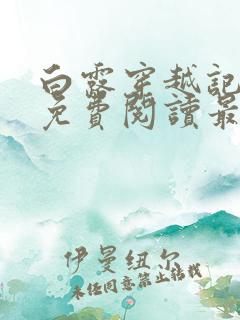 白露穿越記
免費閱讀最
伊曼紐尔
未经同意禁止转载